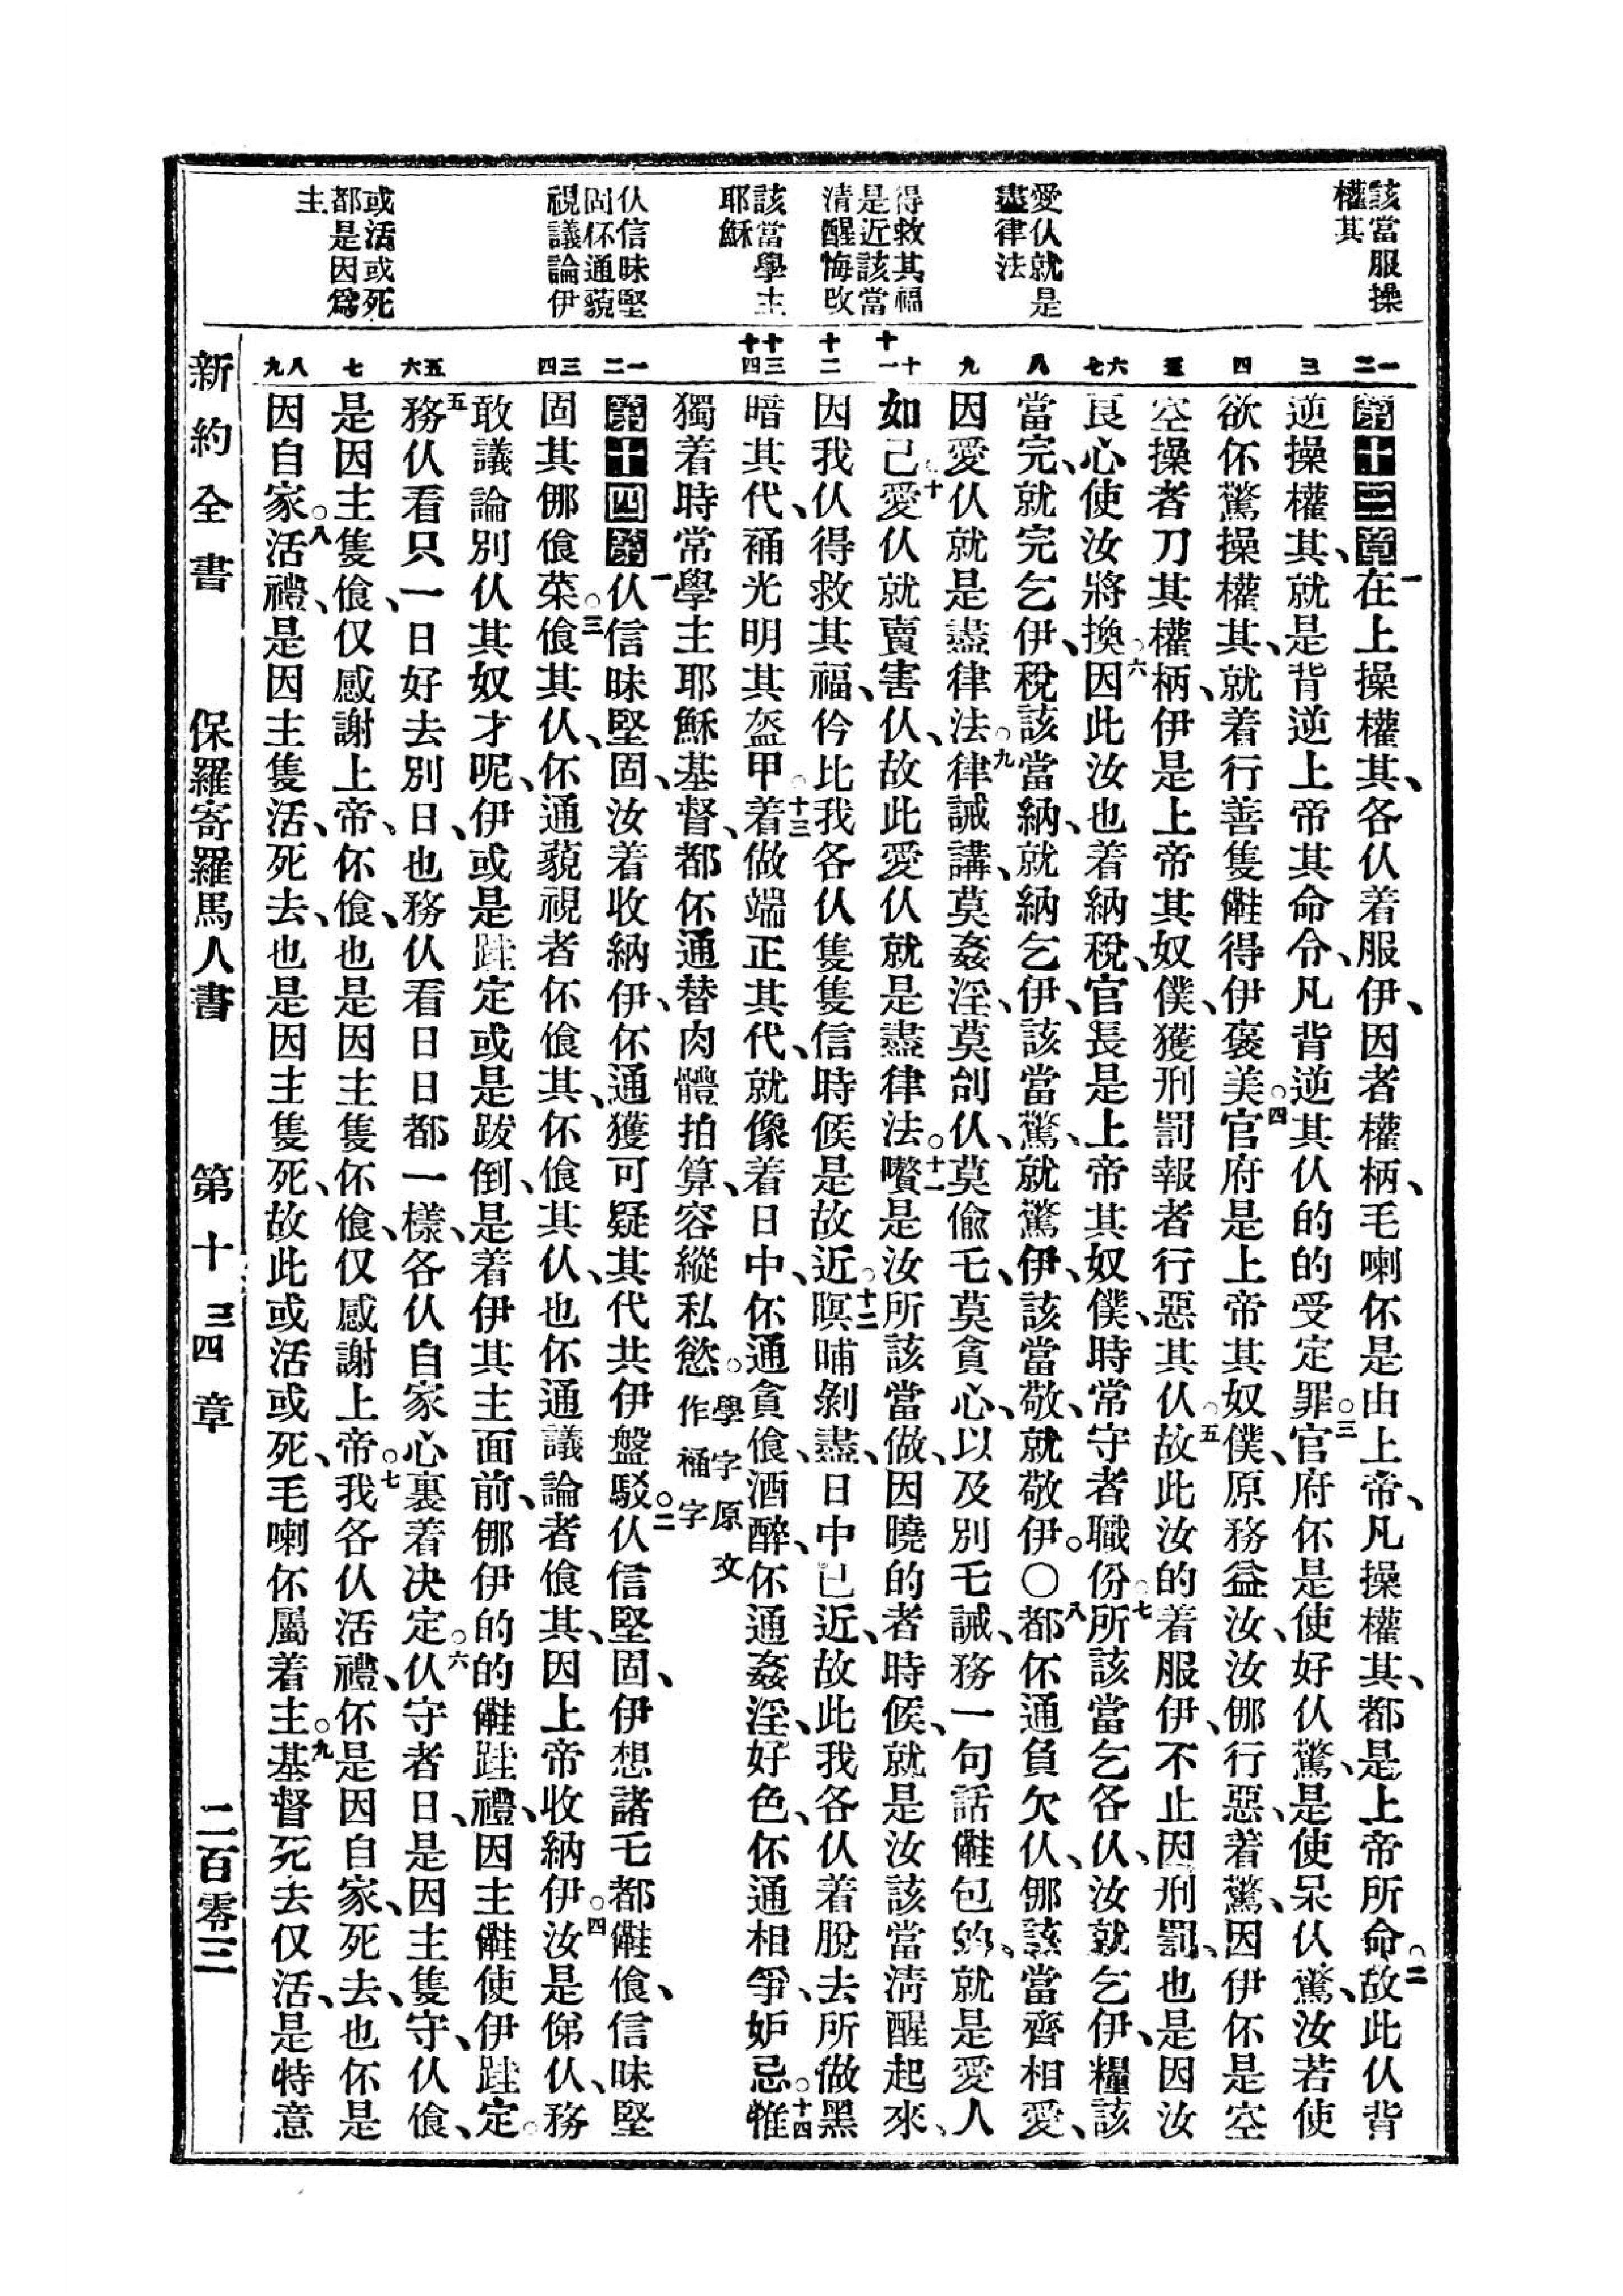 該當服操
權其
愛仈就是
盡律法
得救其福
是近該當
清醒悔改
該當學主
耶穌
仈信昧堅
固伓通藐
視議論伊
或活或死
都是因爲
主
一二
三
四
五
六七
八
九
十十一
十二
十三十四
一二
三四
五六
七
八九
第十三章一在上操權其、各仈着服伊、因者權柄、毛喇伓是由上帝、凡操權其、都是上帝所命。二故此仈背
逆操權其、就是背逆上帝其命令、凡背逆其仈的的受定罪。三官府伓是使好仈驚、是使呆仈驚、汝若使
欲伓驚操權其、就着行善隻㒕得伊褒美。四官府是上帝其奴僕、原務益汝、汝㑚行惡、着驚、因伊伓是空
空操者刀其權柄、伊是上帝其奴僕、獲刑罰報者行惡其仈。五故此汝的着服伊、不止因刑罰、也是因汝
良心使汝將換。六因此汝也着納稅、官長是上帝其奴僕、時常守者職份。七所該當乞各仈、汝就乞伊、糧該
當完、就完乞伊、稅該當納、就納乞伊、該當驚、就驚伊、該當敬、就敬伊。〇八都伓通負欠仈、㑚該當齊相愛、
因愛仈就是盡律法。九律誡講、莫姦淫、莫刣仈、莫偷乇、莫貪心、以及別乇誡、務一句話㒕包的、就是愛人
如己。十愛仈就賣害仈、故此愛仈就是盡律法。十一囋是汝所該當做、因曉的者時候、就是汝該當淸醒起來、
因我仈得救其福、仱比我各仈隻隻信時候是故近。十二暝晡剝盡、日中已近、故此我各仈着脫去所做黑
暗其代、䘄光明其盔甲。十三着做端正其代、就像着日中、伓通貪飡、酒醉、伓通姦淫、好色、伓通相爭、妒忌。十四惟
獨着時常學主耶穌基督、都伓通替肉體拍算、容縱私慾。學字原文作䘄字
第十四章一仈信昧堅固、汝着收納伊、伓通獲可疑其代共伊盤駁。二仈信堅固、伊想諸乇都㒕飡、信昧堅
固其㑚飡菜。三飡其仈、伓通藐視者伓飡其、伓飡其仈、也伓通議論者飡其、因上帝收納伊。四汝是㑚仈、務
敢議論別仈其奴才呢、伊或是跬定或是跋倒、是着伊其主面前、㑚伊的的㒕跬禮、因主㒕使伊跬定。
五務仈看只一日好去別日、也務仈看日日都一樣、各仈自家心裏着決定。六仈守者日、是因主隻守、仈飡、
是因主隻飡、仅感謝上帝、伓飡、也是因主隻伓飡、仅感謝上帝。七我各仈活禮、伓是因自家、死去、也伓是
因自家。八活禮、是因主隻活、死去、也是因主隻死、故此或活或死、毛喇伓屬着主。九基督死去仅活、是特意
新約全書　保羅寄羅馬人書　第十三四章　二百零三